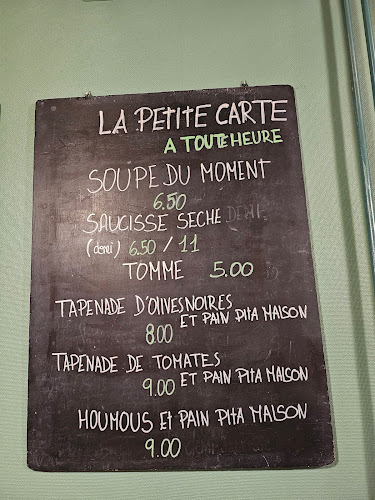 LA PETITE CARTE
A TOUTE HEURE
SOUPE DU MOMENT
6.50
SAUCISSE SECHE
(demi) 6.50 / 11
TOMME 5.00
TAPENADE D'OLIVES NOIRES
ET PAIN PITA MAISON
8.00
TAPENADE DE TOMATES
ET PAIN PITA MAISON
9.00
HOUMOUS ET PAIN PITA MAISON
9.00